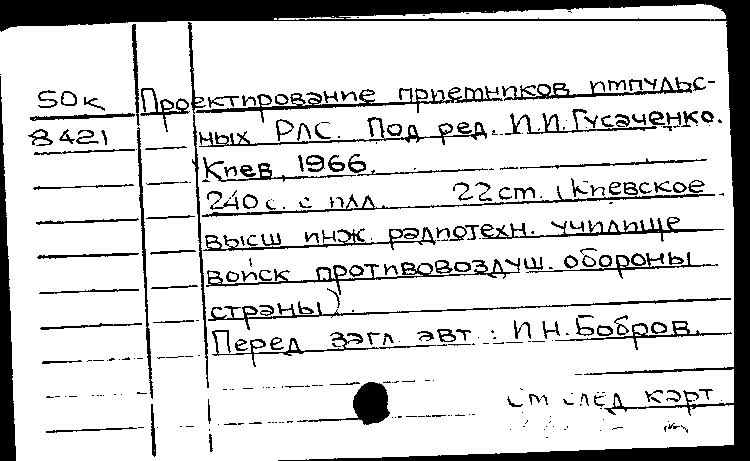 50к Проектирование приемников импульс-
8421 ных РЛС. Под ред. И.И.Гусаченко.
Киев, 1966.
240 с. с илл. 22 cm. (Киевское
высш инж. радиотехн. училище
войск противовоздуш. обороны
страны).
Перед загл авт : И.Н.Бобров.
см след карт.